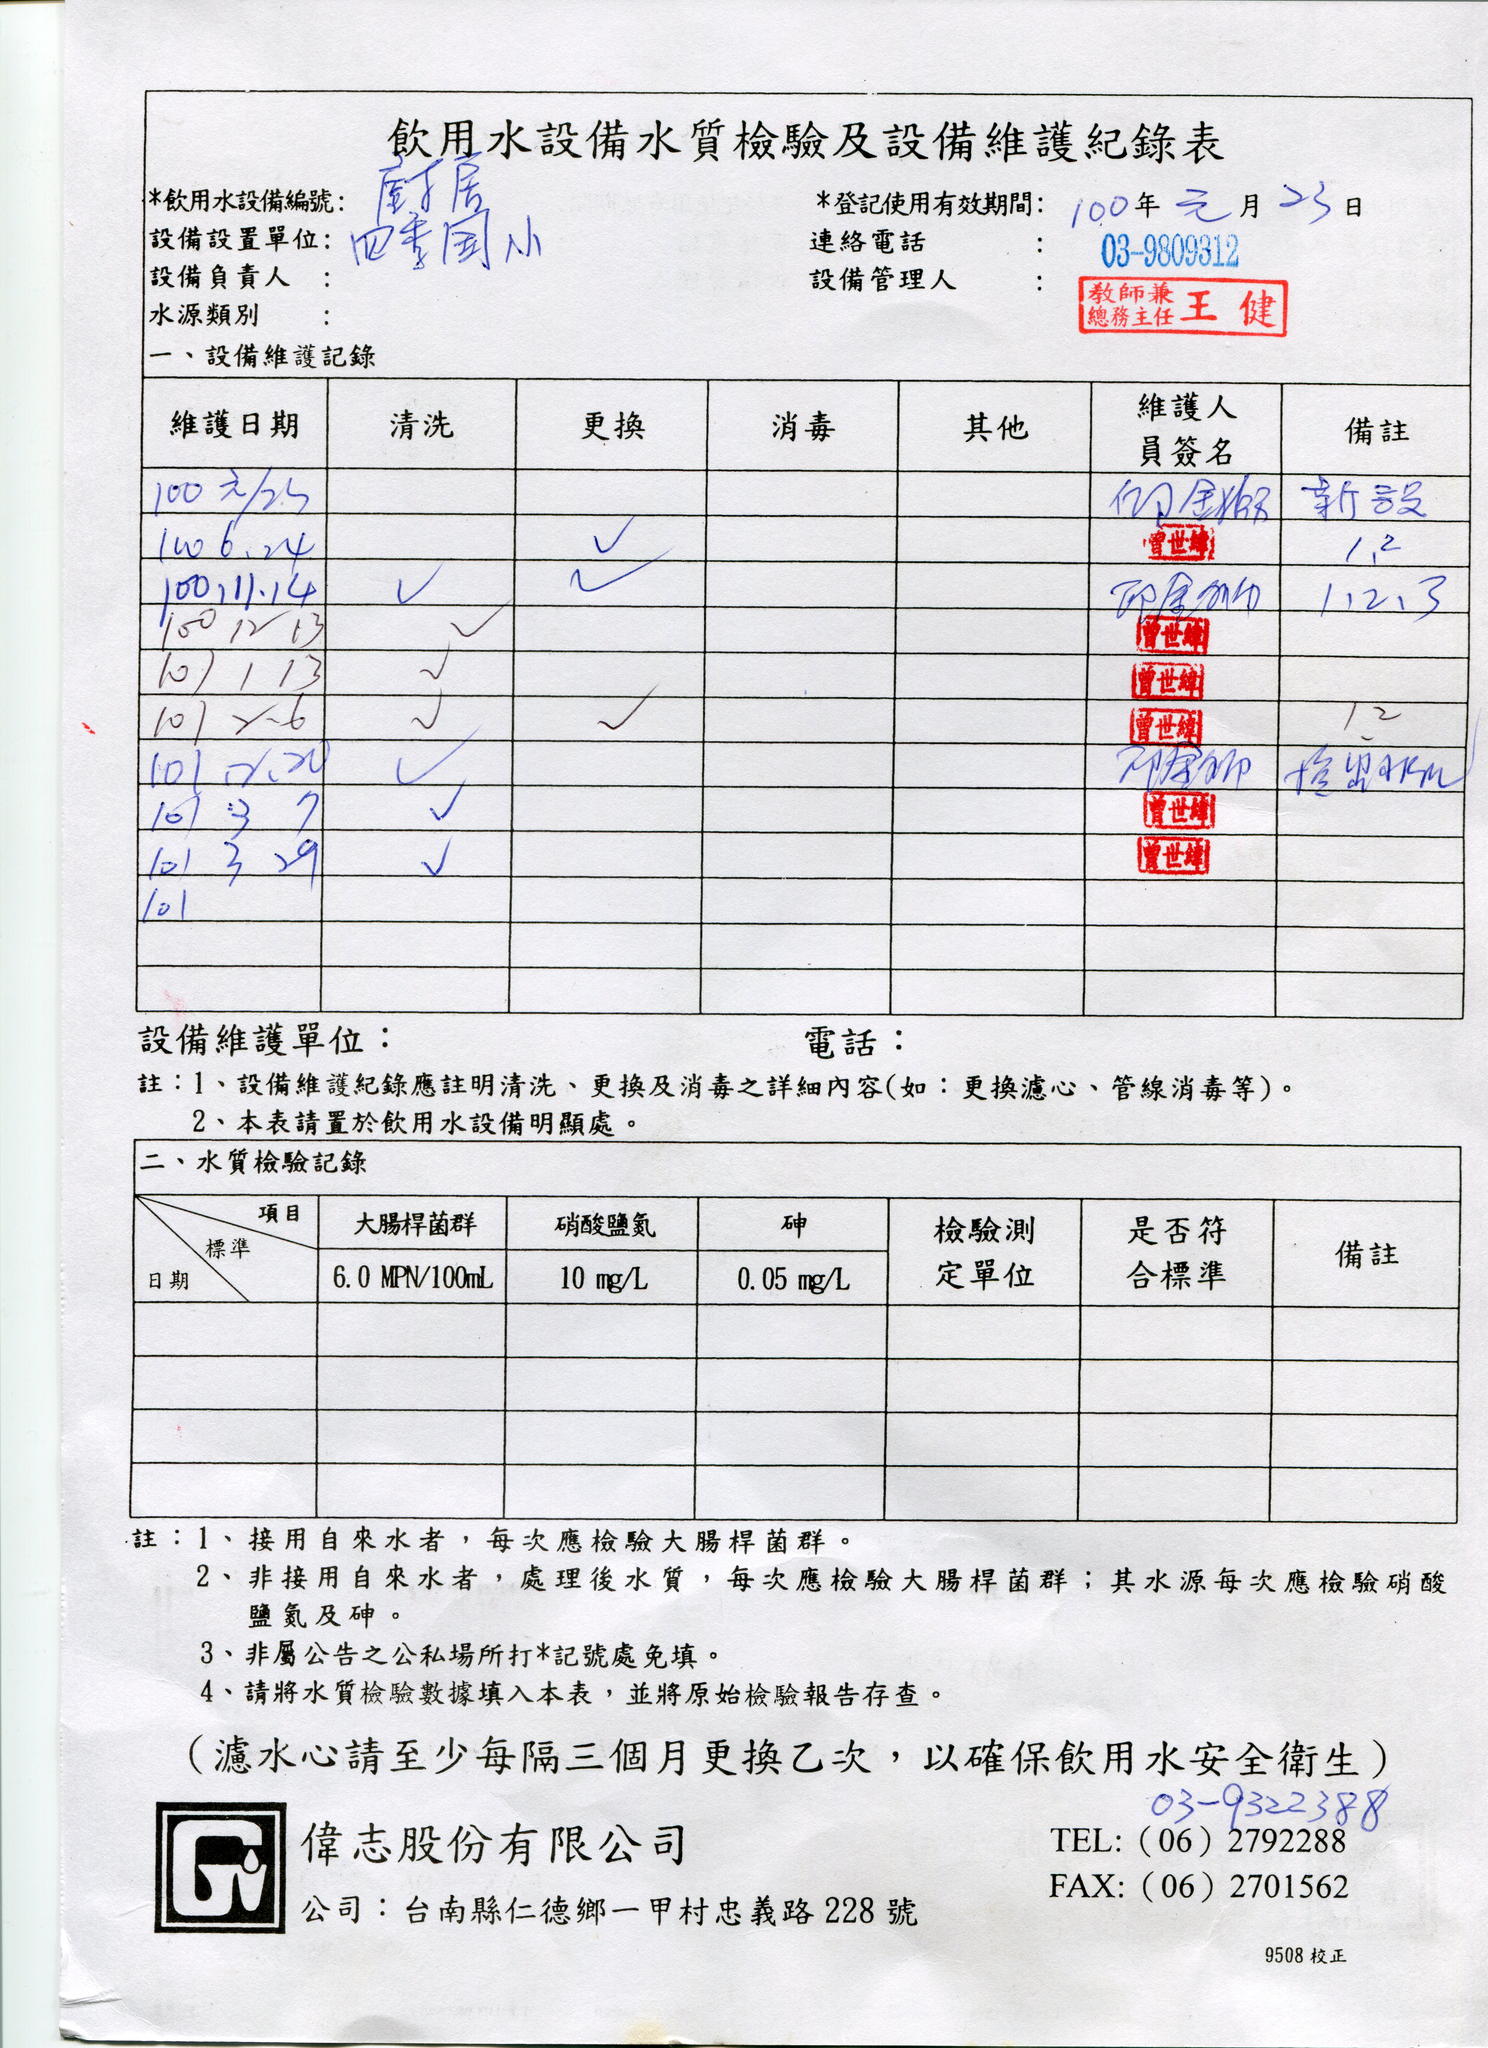 飲用水設備水質檢驗及設備維護紀錄表
*飲用水設備編號: 廚居 *登記使用有效期間: 100年 元月 23日
設備設置單位: 四季國小 連絡電話 : 03-9809312
設備負責人 : 設備管理人 : 教師兼總務主任 王健
水源類別 :
一、設備維護記錄
維護日期 清洗 更換 消毒 其他 維護人員簽名 備註
100 元/23 新設
100 6.24 ✓ 曾世緯 1,2
100.11.14 ✓ ✓ 1,2,3
100 12 13 ✓ 曾世緯
101 1 13 ✓ 曾世緯
101 2.6 ✓ ✓ 曾世緯 1,2
101.2.20 ✓
101 3 7 ✓ 曾世緯
101 3 29 ✓ 曾世緯
101
設備維護單位: 電話:
註:1、設備維護紀錄應註明清洗、更換及消毒之詳細內容(如:更換濾心、管線消毒等)。
2、本表請置於飲用水設備明顯處。
二、水質檢驗記錄
項目 標準 日期 大腸桿菌群 硝酸鹽氮 砷 檢驗測定單位 是否符合標準 備註
6.0 MPN/100mL 10 mg/L 0.05 mg/L
註:1、接用自來水者,每次應檢驗大腸桿菌群。
2、非接用自來水者,處理後水質,每次應檢驗大腸桿菌群;其水源每次應檢驗硝酸
鹽氮及砷。
3、非屬公告之公私場所打*記號處免填。
4、請將水質檢驗數據填入本表,並將原始檢驗報告存查。
(濾水心請至少每隔三個月更換乙次,以確保飲用水安全衛生)
03-9322388
偉志股份有限公司 TEL:(06)2792288
FAX:(06)2701562
公司:台南縣仁德鄉一甲村忠義路228號
9508校正